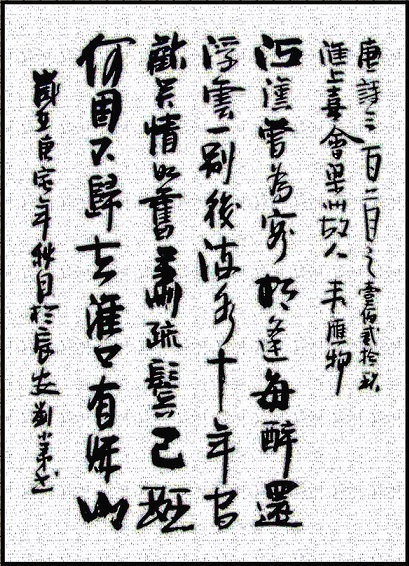 唐詩三百二之壹佰貳拾玖
淮上喜會梁州故人 韋應物
江漢曾為客相逢每醉還
浮雲一別後流水十年間
歡笑情如舊蕭疏鬢已斑
何因不歸去淮上有秋山
歲在庚寅年秋月於長安劉書